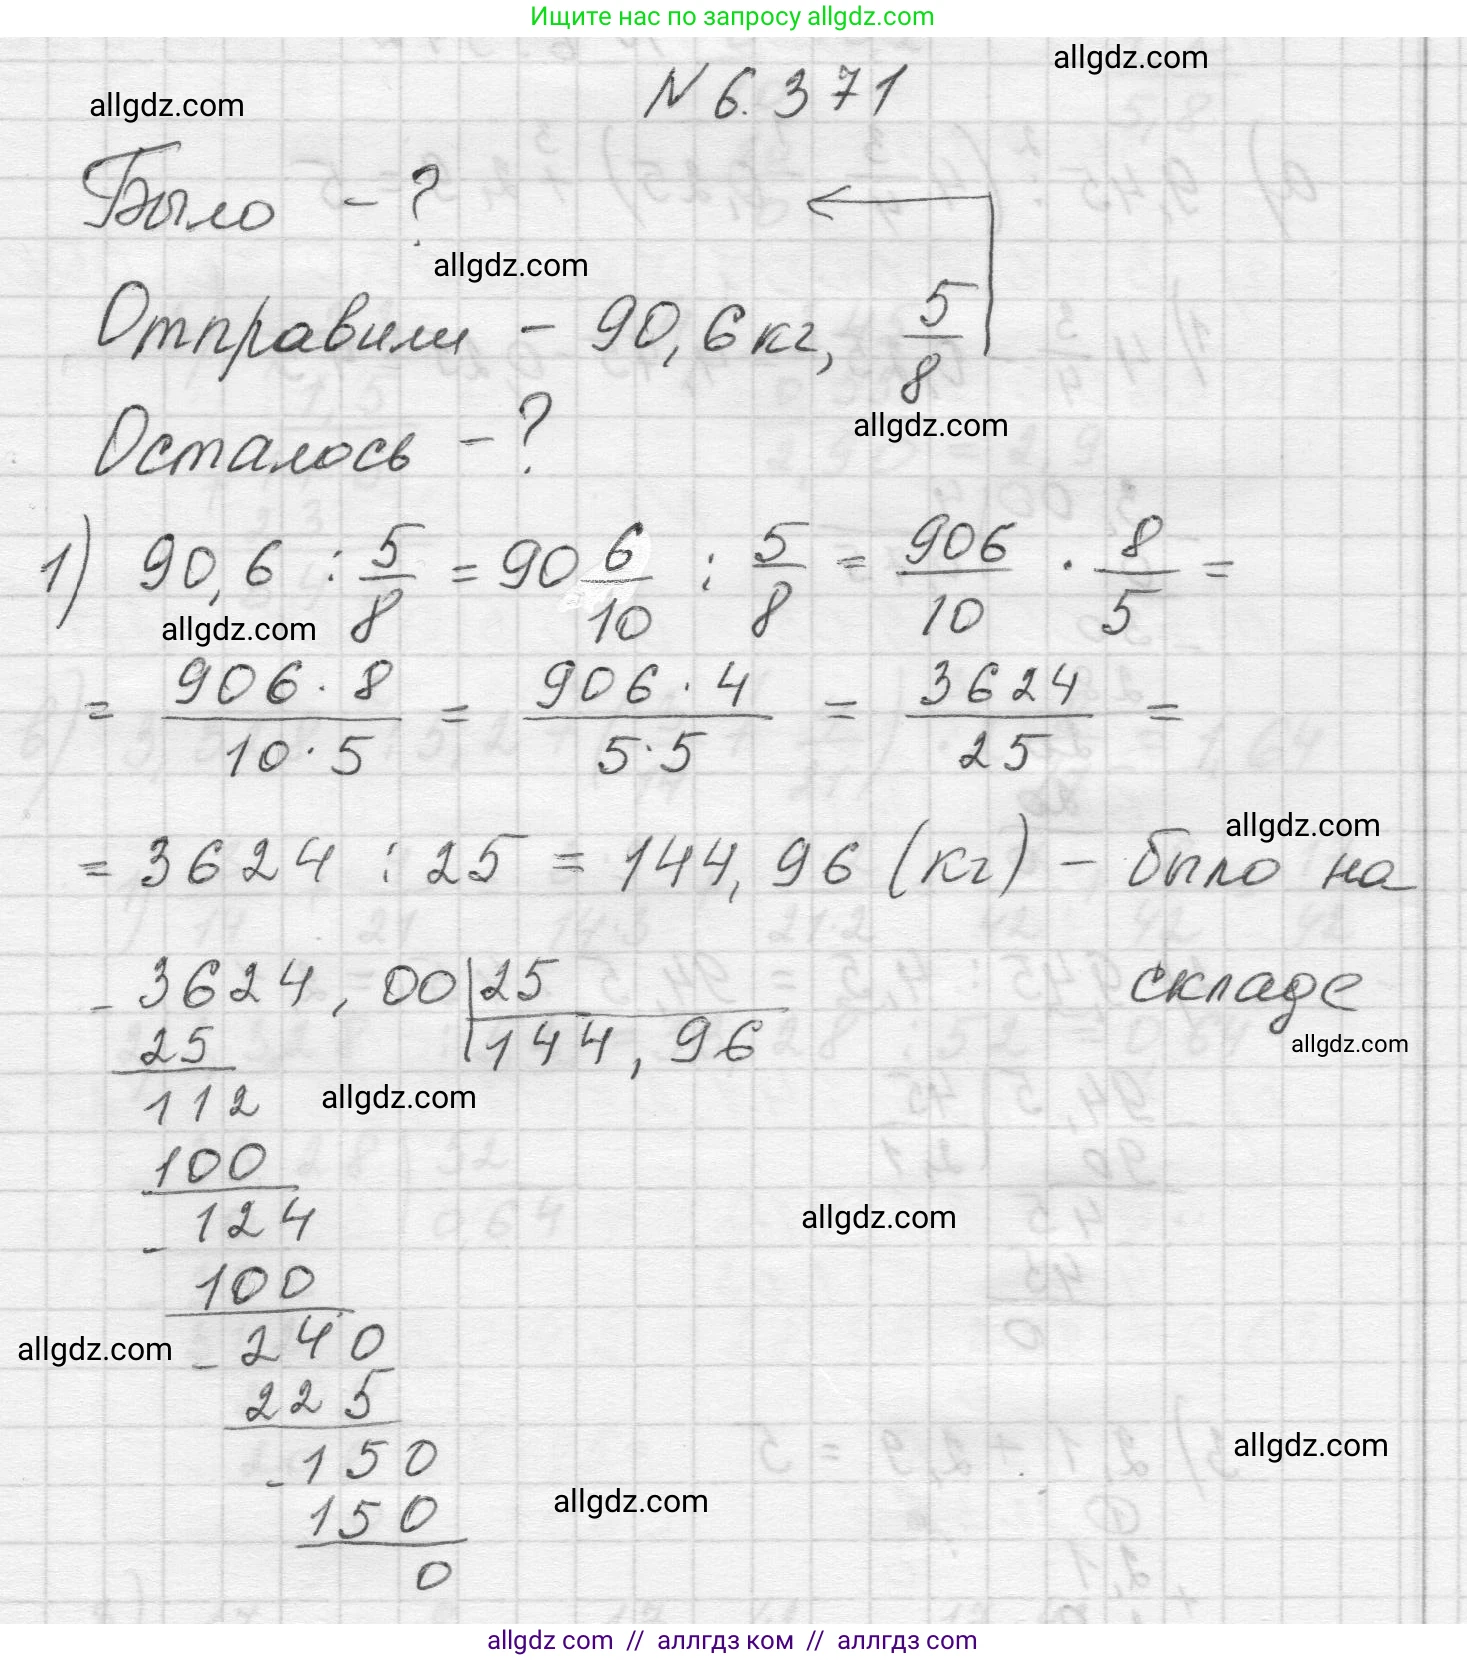 Ищите нас по запросу allgdz.com
allgdz.com
allgdz.com
N 6.371
Было - ?
allgdz.com
Отправили - 90,6 кг, 5/8
allgdz.com
Осталось - ?
1) 90,6 : 5/8 = 90 6/10 : 5/8 = 906/10 · 8/5 =
allgdz.com
= 906·8/10·5 = 906·4/5·5 = 3624/25 =
allgdz.com
= 3624 : 25 = 144,96 (кг) - было на
складе
allgdz.com
- 3624,00 | 25
25 | 144,96
112
allgdz.com
100
- 124
allgdz.com
100
- 240
allgdz.com
225
- 150
allgdz.com
150
allgdz.com
0
allgdz com // аллгдз ком // аллгдз com